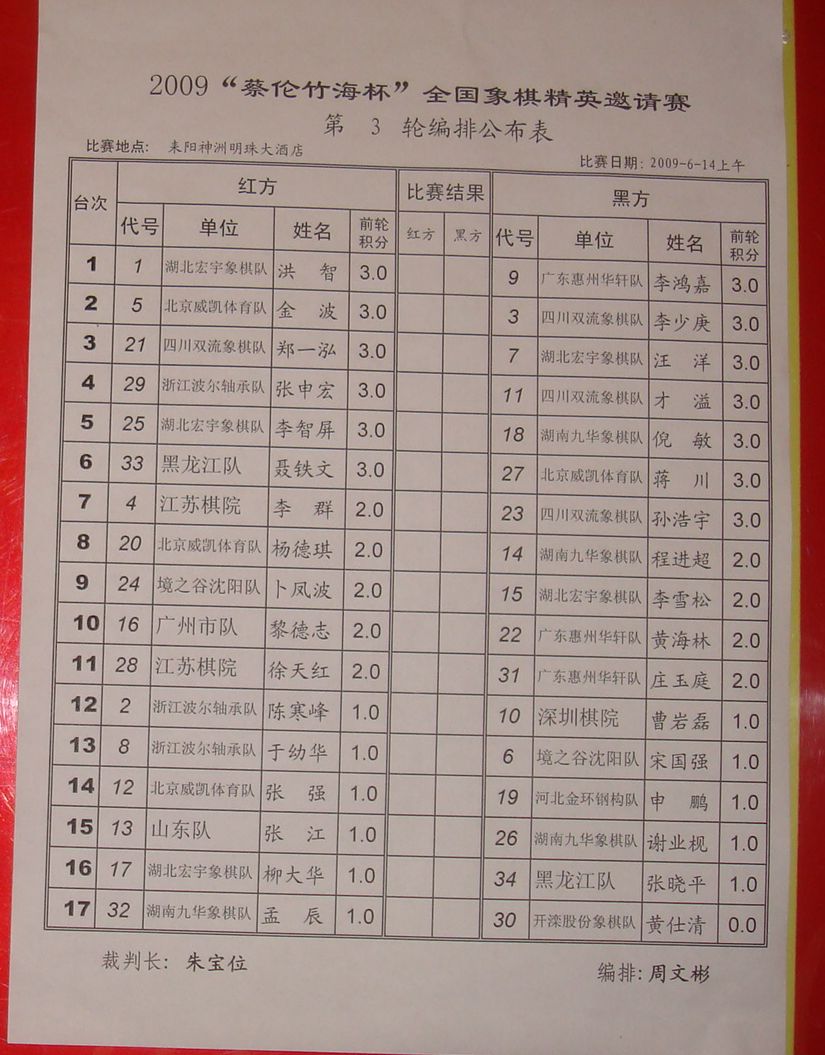 2009“蔡伦竹海杯”全国象棋精英邀请赛
第 3 轮编排公布表
比赛地点: 耒阳神洲明珠大酒店 比赛日期: 2009-6-14上午
台次 红方 比赛结果 黑方
代号 单位 姓名 前轮积分 红方 黑方 代号 单位 姓名 前轮积分
1 1 湖北宏宇象棋队 洪 智 3.0 9 广东惠州华轩队 李鸿嘉 3.0
2 5 北京威凯体育队 金 波 3.0 3 四川双流象棋队 李少庚 3.0
3 21 四川双流象棋队 郑一泓 3.0 7 湖北宏宇象棋队 汪 洋 3.0
4 29 浙江波尔轴承队 张申宏 3.0 11 四川双流象棋队 才 溢 3.0
5 25 湖北宏宇象棋队 李智屏 3.0 18 湖南九华象棋队 倪 敏 3.0
6 33 黑龙江队 聂铁文 3.0 27 北京威凯体育队 蒋 川 3.0
7 4 江苏棋院 李 群 2.0 23 四川双流象棋队 孙浩宇 3.0
8 20 北京威凯体育队 杨德琪 2.0 14 湖南九华象棋队 程进超 2.0
9 24 境之谷沈阳队 卜凤波 2.0 15 湖北宏宇象棋队 李雪松 2.0
10 16 广州市队 黎德志 2.0 22 广东惠州华轩队 黄海林 2.0
11 28 江苏棋院 徐天红 2.0 31 广东惠州华轩队 庄玉庭 2.0
12 2 浙江波尔轴承队 陈寒峰 1.0 10 深圳棋院 曹岩磊 1.0
13 8 浙江波尔轴承队 于幼华 1.0 6 境之谷沈阳队 宋国强 1.0
14 12 北京威凯体育队 张 强 1.0 19 河北金环钢构队 申 鹏 1.0
15 13 山东队 张 江 1.0 26 湖南九华象棋队 谢业枧 1.0
16 17 湖北宏宇象棋队 柳大华 1.0 34 黑龙江队 张晓平 1.0
17 32 湖南九华象棋队 孟 辰 1.0 30 开滦股份象棋队 黄仕清 0.0
裁判长: 朱宝位 编排: 周文彬